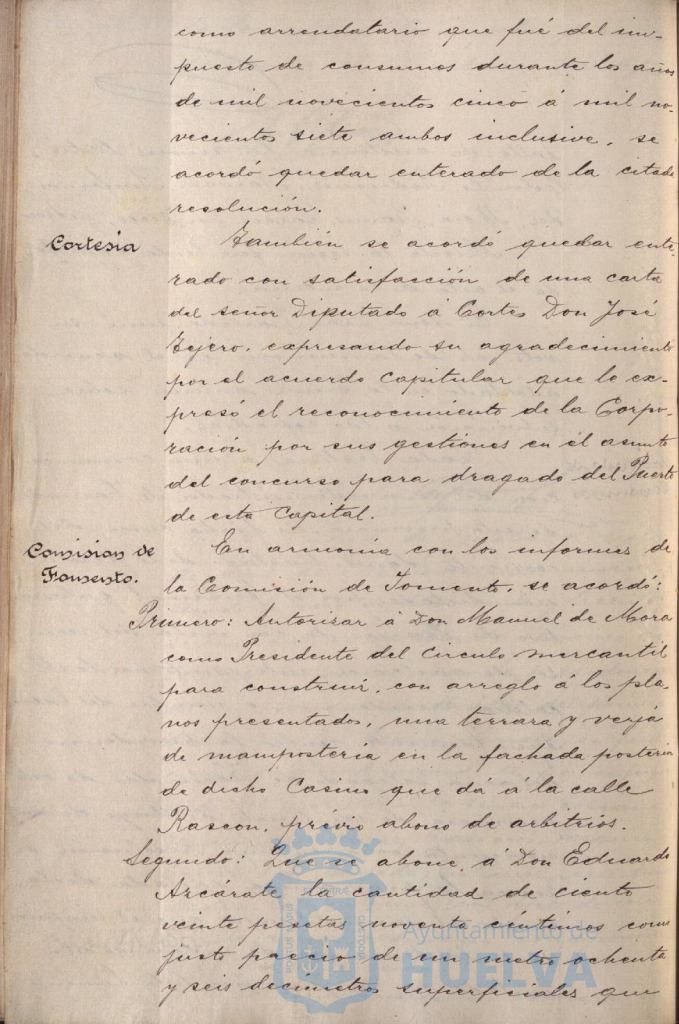 como arrendatario que fué del im-
puesto de consumos durante los años
de mil novecientos cinco á mil no-
vecientos siete ambos inclusive, se
acordó quedar enterado de la citada
resolución.
Cortesía
También se acordó quedar ente-
rado con satisfacción de una carta
del señor Diputado á Cortes Don José
Tejero, expresando su agradecimiento
por el acuerdo capitular que le ex-
presó el reconocimiento de la Corpo-
ración por sus gestiones en el asunto
del concurso para dragado del Puerto
de esta Capital.
Comision de
Fomento.
En armonía con los informes de
la Comisión de Fomento, se acordó:
Primero: Autorizar á Don Manuel de Mora
como Presidente del Circulo mercantil
para construir, con arreglo á los pla-
nos presentados, una terrara y verja
de mampostería en la fachada posterior
de dicho Casino que dá á la calle
Rascon, prévio abono de arbitrios.
Segundo: Que se abone á Don Eduardo
Azcárate la cantidad de ciento
veinte pesetas noventa céntimos como
justo precio de un metro ochenta
y seis decimetros superficiales que
Ayuntamiento de
HUELVA